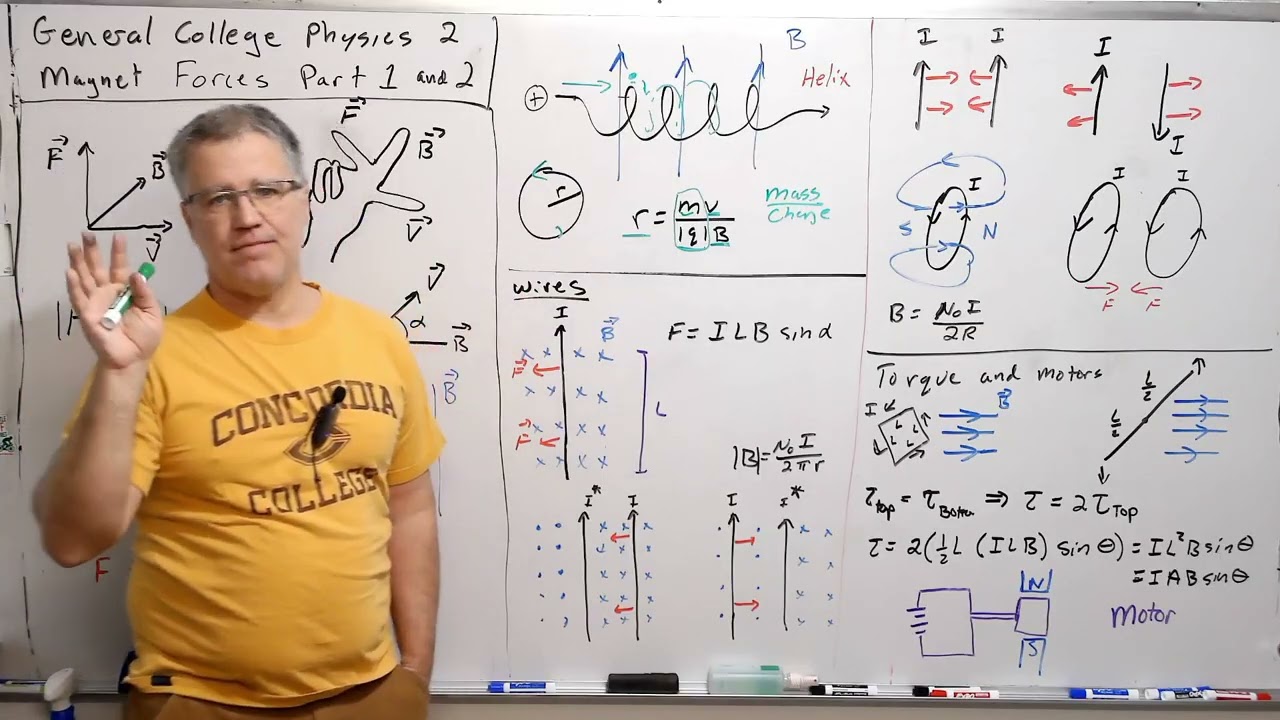 General College Physics 2
Magnet Forces Part 1 and 2
F
B
V
F
B
V
V
α
B
B
F
CONCORDIA
C
COLLEGE
B
Helix
+
r
r = mv / |q|B
mass / charge
wires
I
B
F
F
L
F = I L B sin α
|B| = μ₀I / 2πr
I*
I
I
I*
I
I
I
I
I
S
N
I
I
F
F
B = μ₀I / 2R
Torque and motors
I
L
L
L
L
B
L/2
L/2
τTop = τBottom ⇒ τ = 2τTop
τ = 2(½L (ILB) sin θ) = IL²B sin θ
= IAB sin θ
N
S
Motor